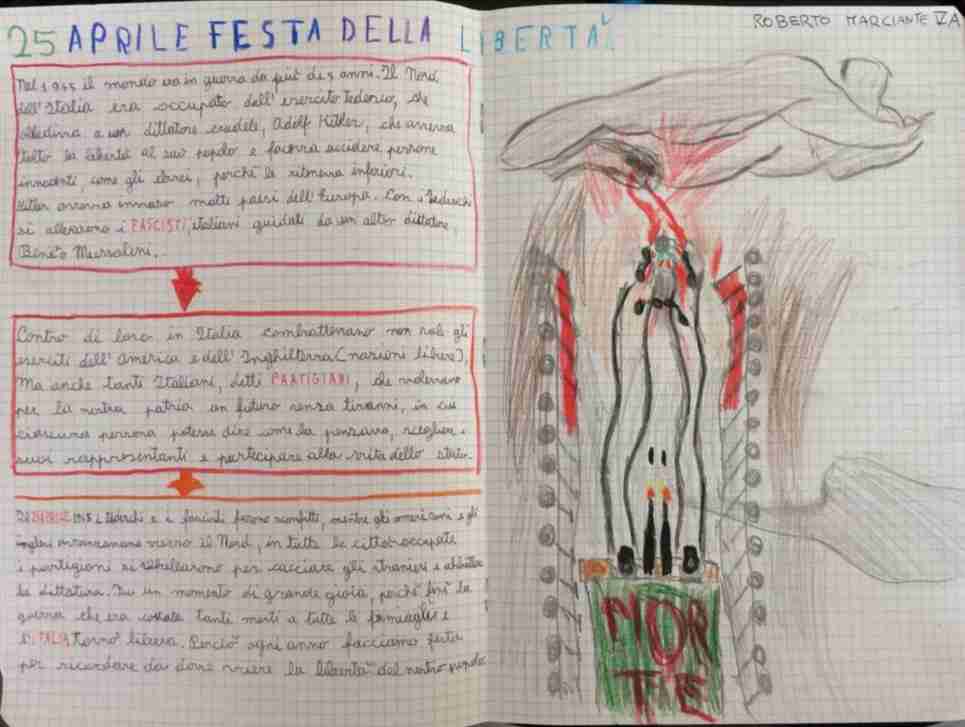 25 APRILE FESTA DELLA LIBERTÀ
ROBERTO MARCIANTE VA
Nel 1945 il mondo era in guerra da più di 5 anni. Il Nord
dell'Italia era occupato dall'esercito tedesco, che
obbediva a un dittatore crudele, Adolf Hitler, che aveva
tolto la libertà al suo popolo e faceva uccidere persone
innocenti, come gli ebrei, perché le riteneva inferiori.
Hitler aveva invaso molti paesi dell'Europa. Con i Tedeschi
si allearono i FASCISTI italiani guidati da un altro dittatore,
Benito Mussolini.
Contro di loro in Italia combattevano non solo gli
eserciti dell'America e dell'Inghilterra (nazioni libere),
Ma anche tanti Italiani, detti PARTIGIANI, che volevano
per la nostra patria un futuro senza tiranni, in cui
ciascuna persona potesse dire come la pensava, scegliere i
suoi rappresentanti e partecipare alla vita dello stato.
1945 i tedeschi e i fascisti furono sconfitti, mentre gli americani e gli
inglesi avanzavano verso il Nord, in tutte le città occupate
i partigiani si ribellarono per cacciare gli stranieri e abbattere
la dittatura. Fu un momento di grande gioia, perché finì la
guerra che era costata tanti morti a tutte le famiglie e
l'ITALIA tornò libera. Perciò ogni anno facciamo festa
per ricordare da dove viene la libertà del nostro popolo
MOR
TE